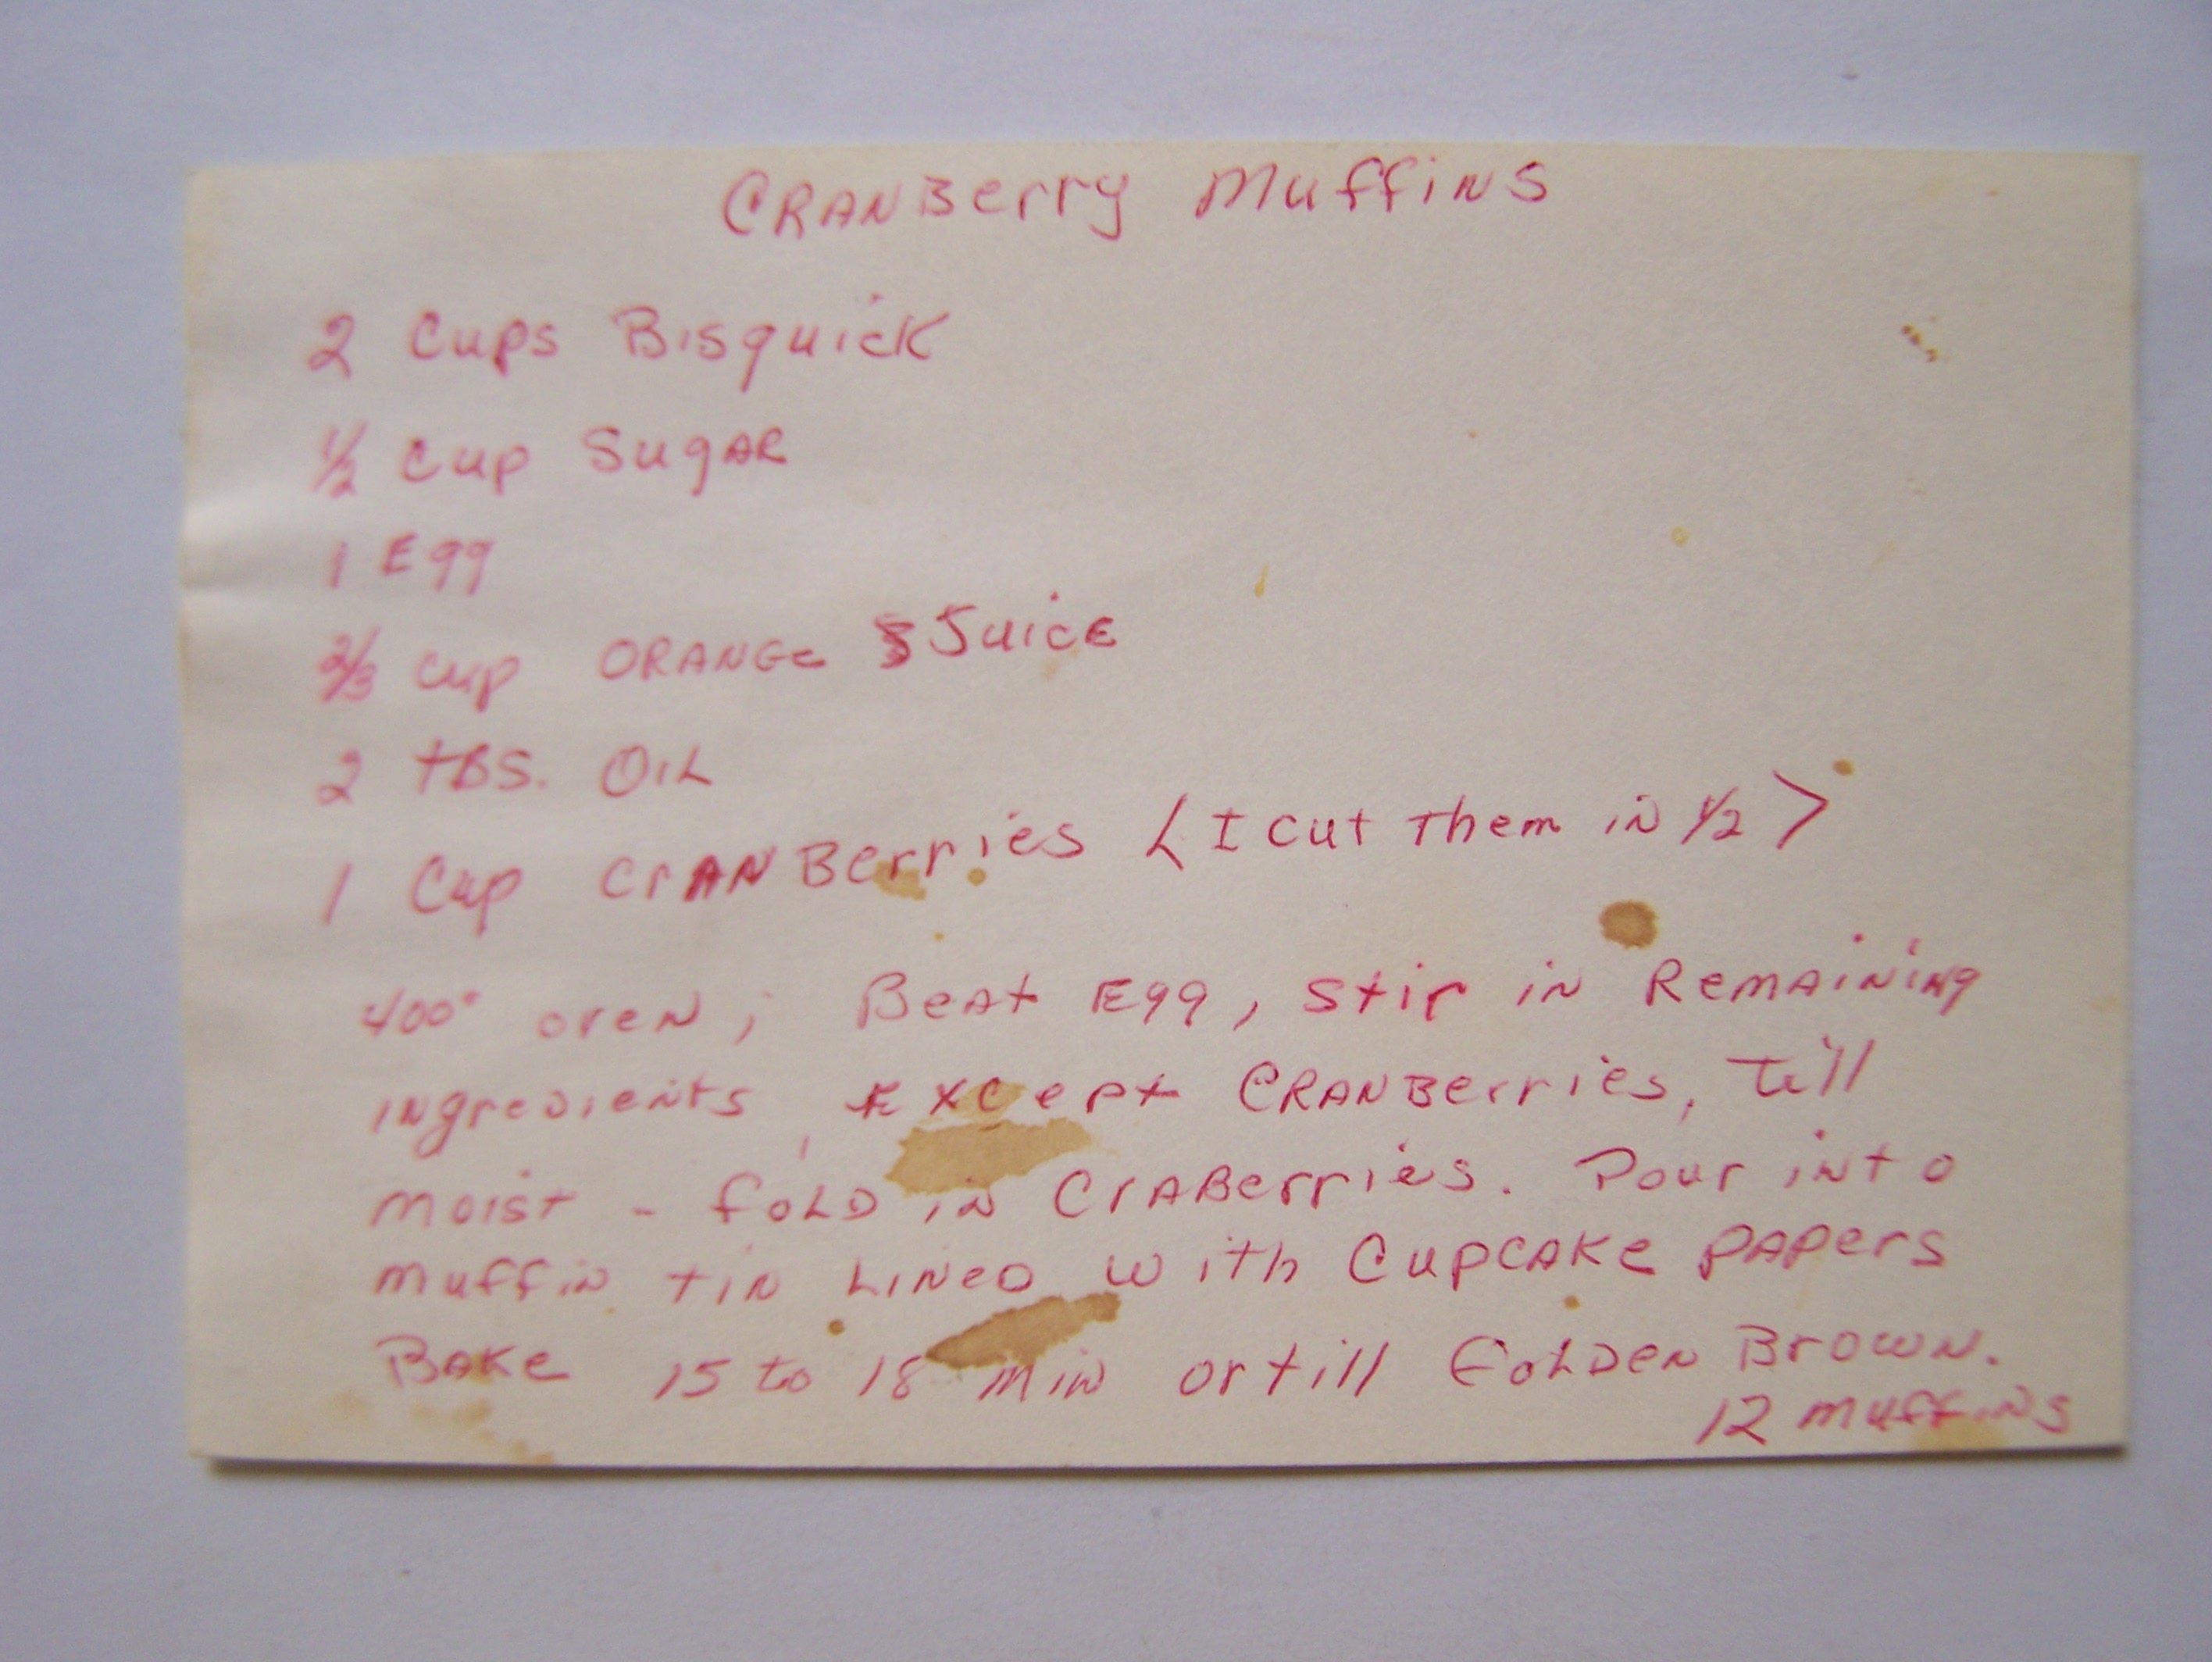 CRANBerry Muffins
2 Cups Bisquick
1/2 Cup Sugar
1 Egg
2/3 Cup ORANGe Juice
2 tBS. OiL
1 Cup CrANBerries <I cut Them in 1/2>
400° oven; Beat Egg, Stir in Remaining
ingredients, Except CRANBerries, till
Moist - foLD in CrABerries. Pour into
Muffin tin Lined with Cupcake papers
Bake 15 to 18 Min or till GoLDen Brown.
12 Muffins